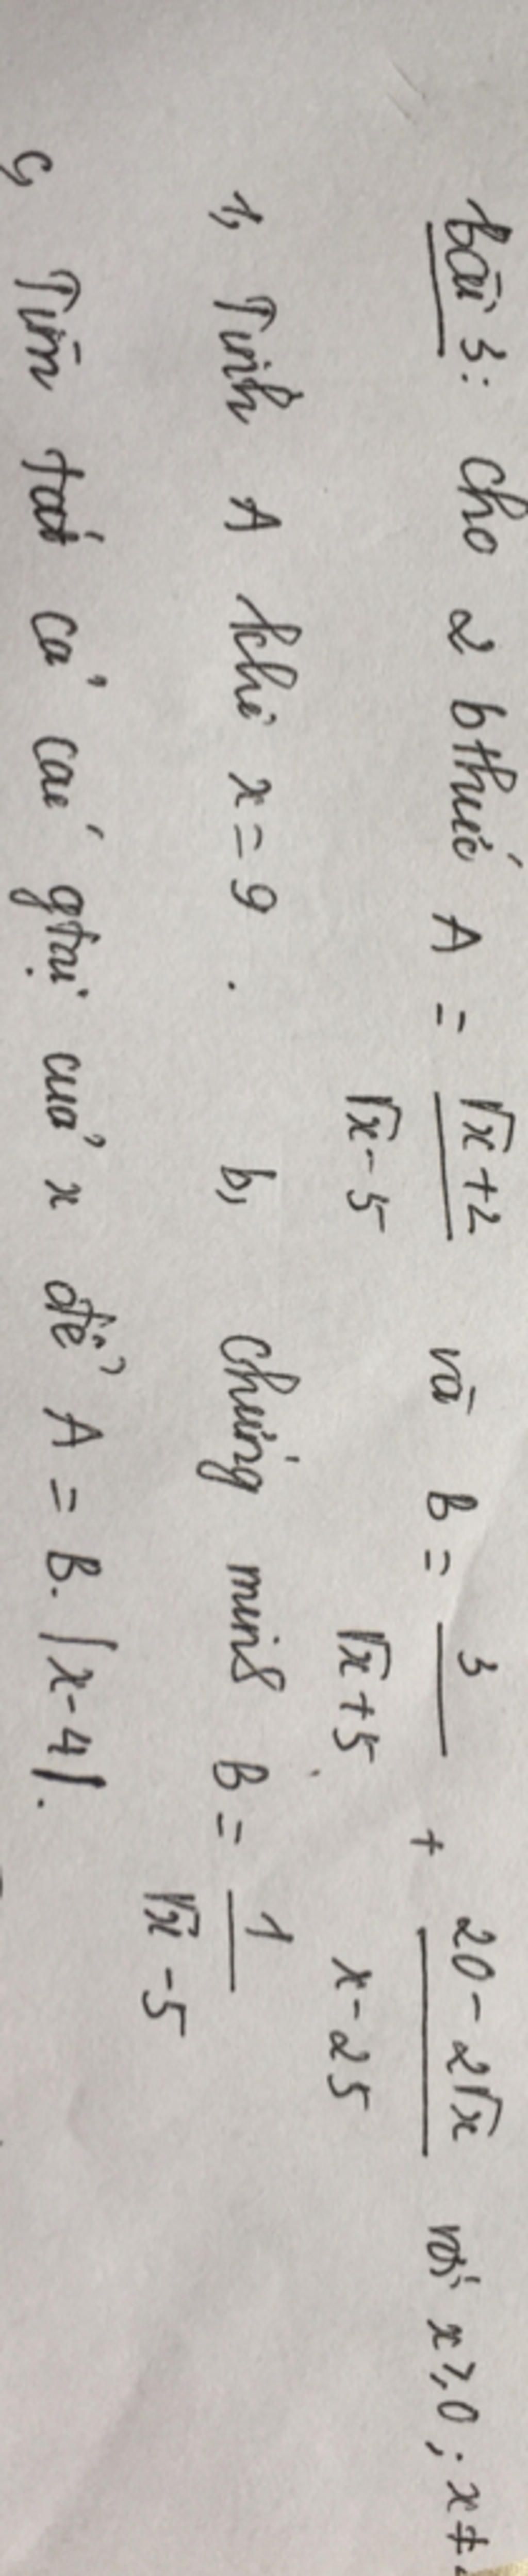 bài 3: cho 2 bthức A = \frac{\sqrt{x}+2}{\sqrt{x}-5} và B = \frac{3}{\sqrt{x}+5} + \frac{20-2\sqrt{x}}{x-25} với x ≥ 0 ; x ≠
1, Tính A khi x = 9 . b, Chứng minh B = \frac{1}{\sqrt{x}-5}
c, Tìm tất cả các gtrị của x để A = B. |x-4|.